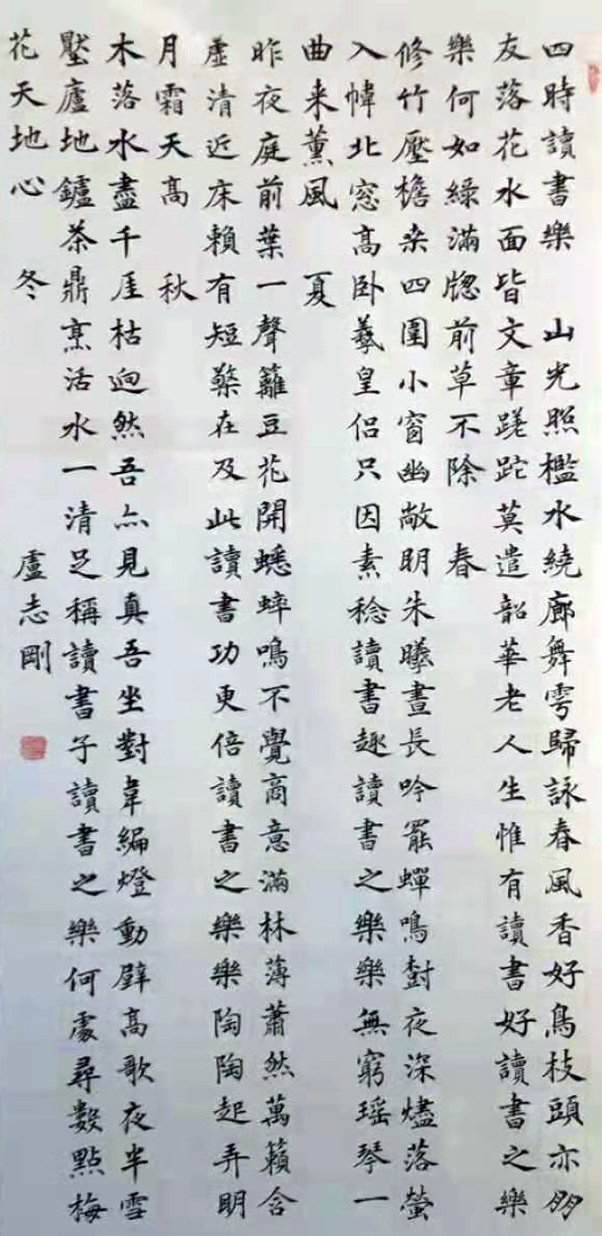 四時讀書樂 山光照檻水繞廊舞雩歸詠春風香好鳥枝頭亦朋
友落花水面皆文章蹉跎莫遣韶華老人生惟有讀書好讀書之樂
樂何如綠滿牎前草不除 春
修竹壓檐桒四圍小窗幽敞明朱曦晝長吟罷蟬鳴樹夜深燼落螢
入幃北窓高卧羲皇侣只因素稔讀書趣讀書之樂樂無窮瑤琴一
曲来薰風 夏
昨夜庭前葉一聲籬豆花開蟋蟀鳴不覺商意滿林薄蕭然萬籟含
虛清近床賴有短檠在及此讀書功更倍讀書之樂樂陶陶起弄明
月霜天高 秋
木落水盡千厓枯迥然吾亦見真吾坐對韋編燈動壁高歌夜半雪
壓廬地鑪茶鼎烹活水一清足稱讀書子讀書之樂何處尋數點梅
花天地心 冬 盧志剛